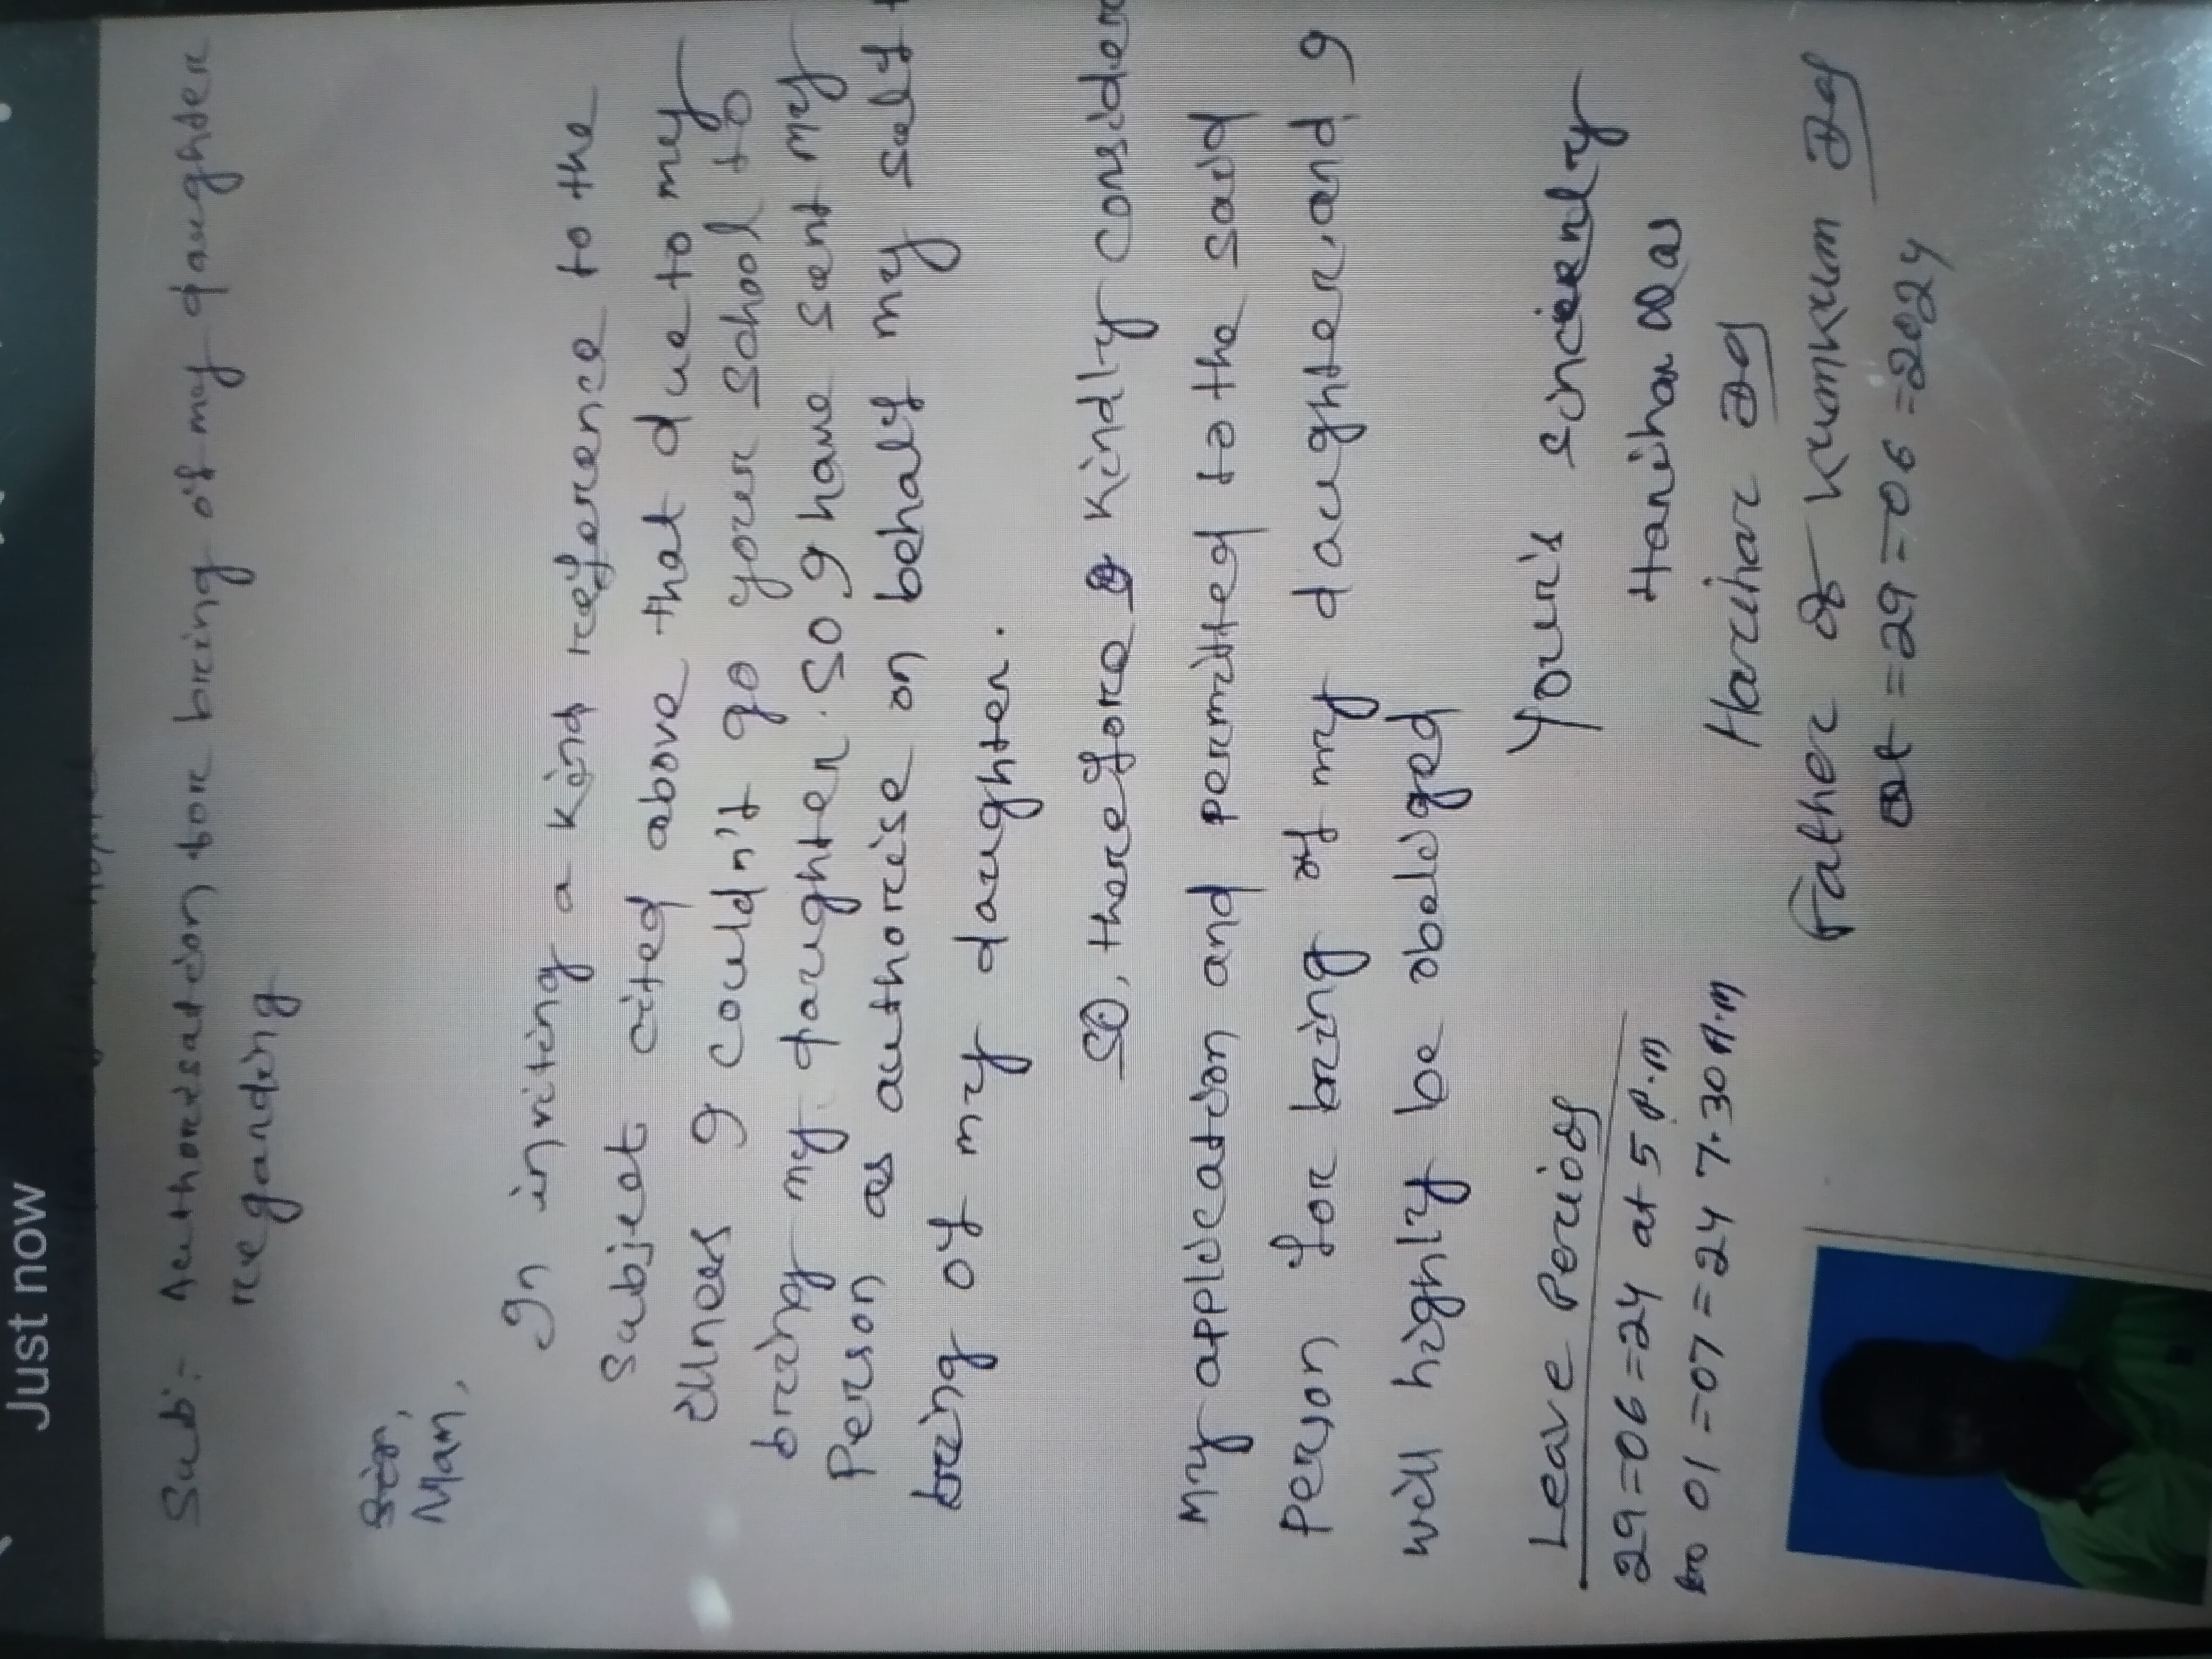 Just now
Sub:- Authorisation for bring of my daughter
regarding
Sir,
Mam,
In inviting a kind reference to the
subject cited above that due to my
illness I couldn't go your school to
bring my daughter. So I have sent my
person as authorise on behalf my self
bring of my daughter.
So, therefore kindly consider
my application and permitted to the said
person for bring of my daughter, and I
will highly be obeliged
Your's sincerely
Harihar Das
Harihar Das
Father of Kumkum Das
Dt = 29 = 06 = 2024
Leave Period
29 = 06 = 24 at 5 P.M
to 01 = 07 = 24 7.30 A.M